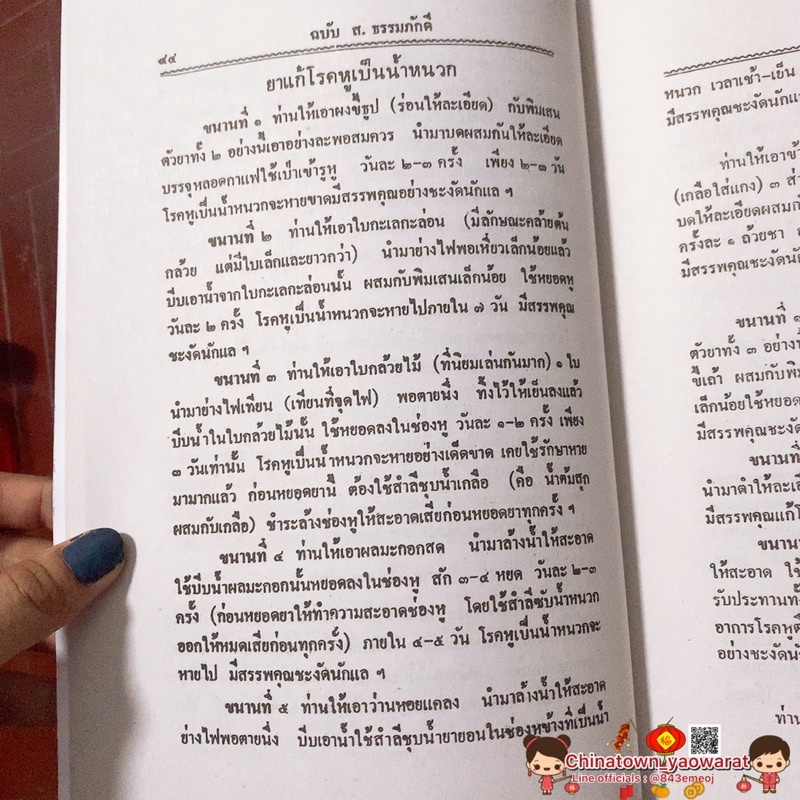 ฉบับ ส. ธรรมภักดี
๔๔
ยาแก้โรคหูเป็นน้ำหนวก
ขนานที่ ๑ ท่านให้เอาผงขี้ธูป (ร่อนให้ละเอียด) กับพิมเสน
ตัวยาทั้ง ๒ อย่างนี้เอาอย่างละพอสมควร นำมาบดผสมกันให้ละเอียด
บรรจุหลอดกาแฟใช้เป่าเข้ารูหู วันละ ๒-๓ ครั้ง เพียง ๒-๓ วัน
โรคหูเป็นน้ำหนวกจะหายขาดมีสรรพคุณอย่างชะงัดนักแล ฯ
ขนานที่ ๒ ท่านให้เอาใบกะเลกะล่อน (มีลักษณะคล้ายต้น
กล้วย แต่มีใบเล็กและยาวกว่า) นำมาย่างไฟพอเหี่ยวเล็กน้อยแล้ว
บีบเอาน้ำจากใบกะเลกะล่อนนั้น ผสมกับพิมเสนเล็กน้อย ใช้หยอดหู
วันละ ๒ ครั้ง โรคหูเป็นน้ำหนวกจะหายไปภายใน ๗ วัน มีสรรพคุณ
ชะงัดนักแล ฯ
ขนานที่ ๓ ท่านให้เอาใบกล้วยไม้ (ที่นิยมเล่นกันมาก) ๑ ใบ
นำมาย่างไฟเทียน (เทียนที่จุดไฟ) พอตายนึ่ง ทิ้งไว้ให้เย็นลงแล้ว
บีบน้ำในใบกล้วยไม้นั้น ใช้หยอดลงในช่องหู วันละ ๑-๒ ครั้ง เพียง
๓ วันเท่านั้น โรคหูเป็นน้ำหนวกจะหายอย่างเด็ดขาด เคยใช้รักษาหาย
มามากแล้ว ก่อนหยอดยานี้ ต้องใช้สำลีชุบน้ำเกลือ (คือ น้ำต้มสุก
ผสมกับเกลือ) ชำระล้างช่องหูให้สะอาดเสียก่อนหยอดยาทุกครั้ง ฯ
ขนานที่ ๔ ท่านให้เอาผลมะกอกสด นำมาล้างน้ำให้สะอาด
ใช้บีบน้ำผลมะกอกนั้นหยอดลงในช่องหู สัก ๓-๔ หยด วันละ ๒-๓
ครั้ง (ก่อนหยอดยาให้ทำความสะอาดช่องหู โดยใช้สำลีซับน้ำหนวก
ออกให้หมดเสียก่อนทุกครั้ง) ภายใน ๔-๕ วัน โรคหูเป็นน้ำหนวกจะ
หายไป มีสรรพคุณชะงัดนักแล ฯ
ขนานที่ ๕ ท่านให้เอาว่านหอยแครง นำมาล้างน้ำให้สะอาด
ย่างไฟพอตายนึ่ง บีบเอาน้ำใช้สำลีชุบน้ำยายอนในช่องหูข้างที่เป็นน้ำ
หนวก เวลาเช้า-เย็น
มีสรรพคุณชะงัดนักแล
ท่านให้เอา
(เกลือใส่แกง) ๓
บดให้ละเอียดผสม
ครั้งละ ๑ ถ้วยชา
มีสรรพคุณชะงัดนัก
ขนานที่ ๑
ตัวยาทั้ง ๓ อย่าง
ขี้เถ้า ผสมกับ
เล็กน้อยใช้หยอด
มีสรรพคุณชะงัดนัก
ขนานที่
นำมาตำให้
มีสรรพคุณแก้
ขนาน
ให้สะอาด ใช้
รับประทานทั้ง
อาการโรคหู
อย่างชะงัด
ท่าน
Chinatown_yaowarat
Line officials : @843emeoj